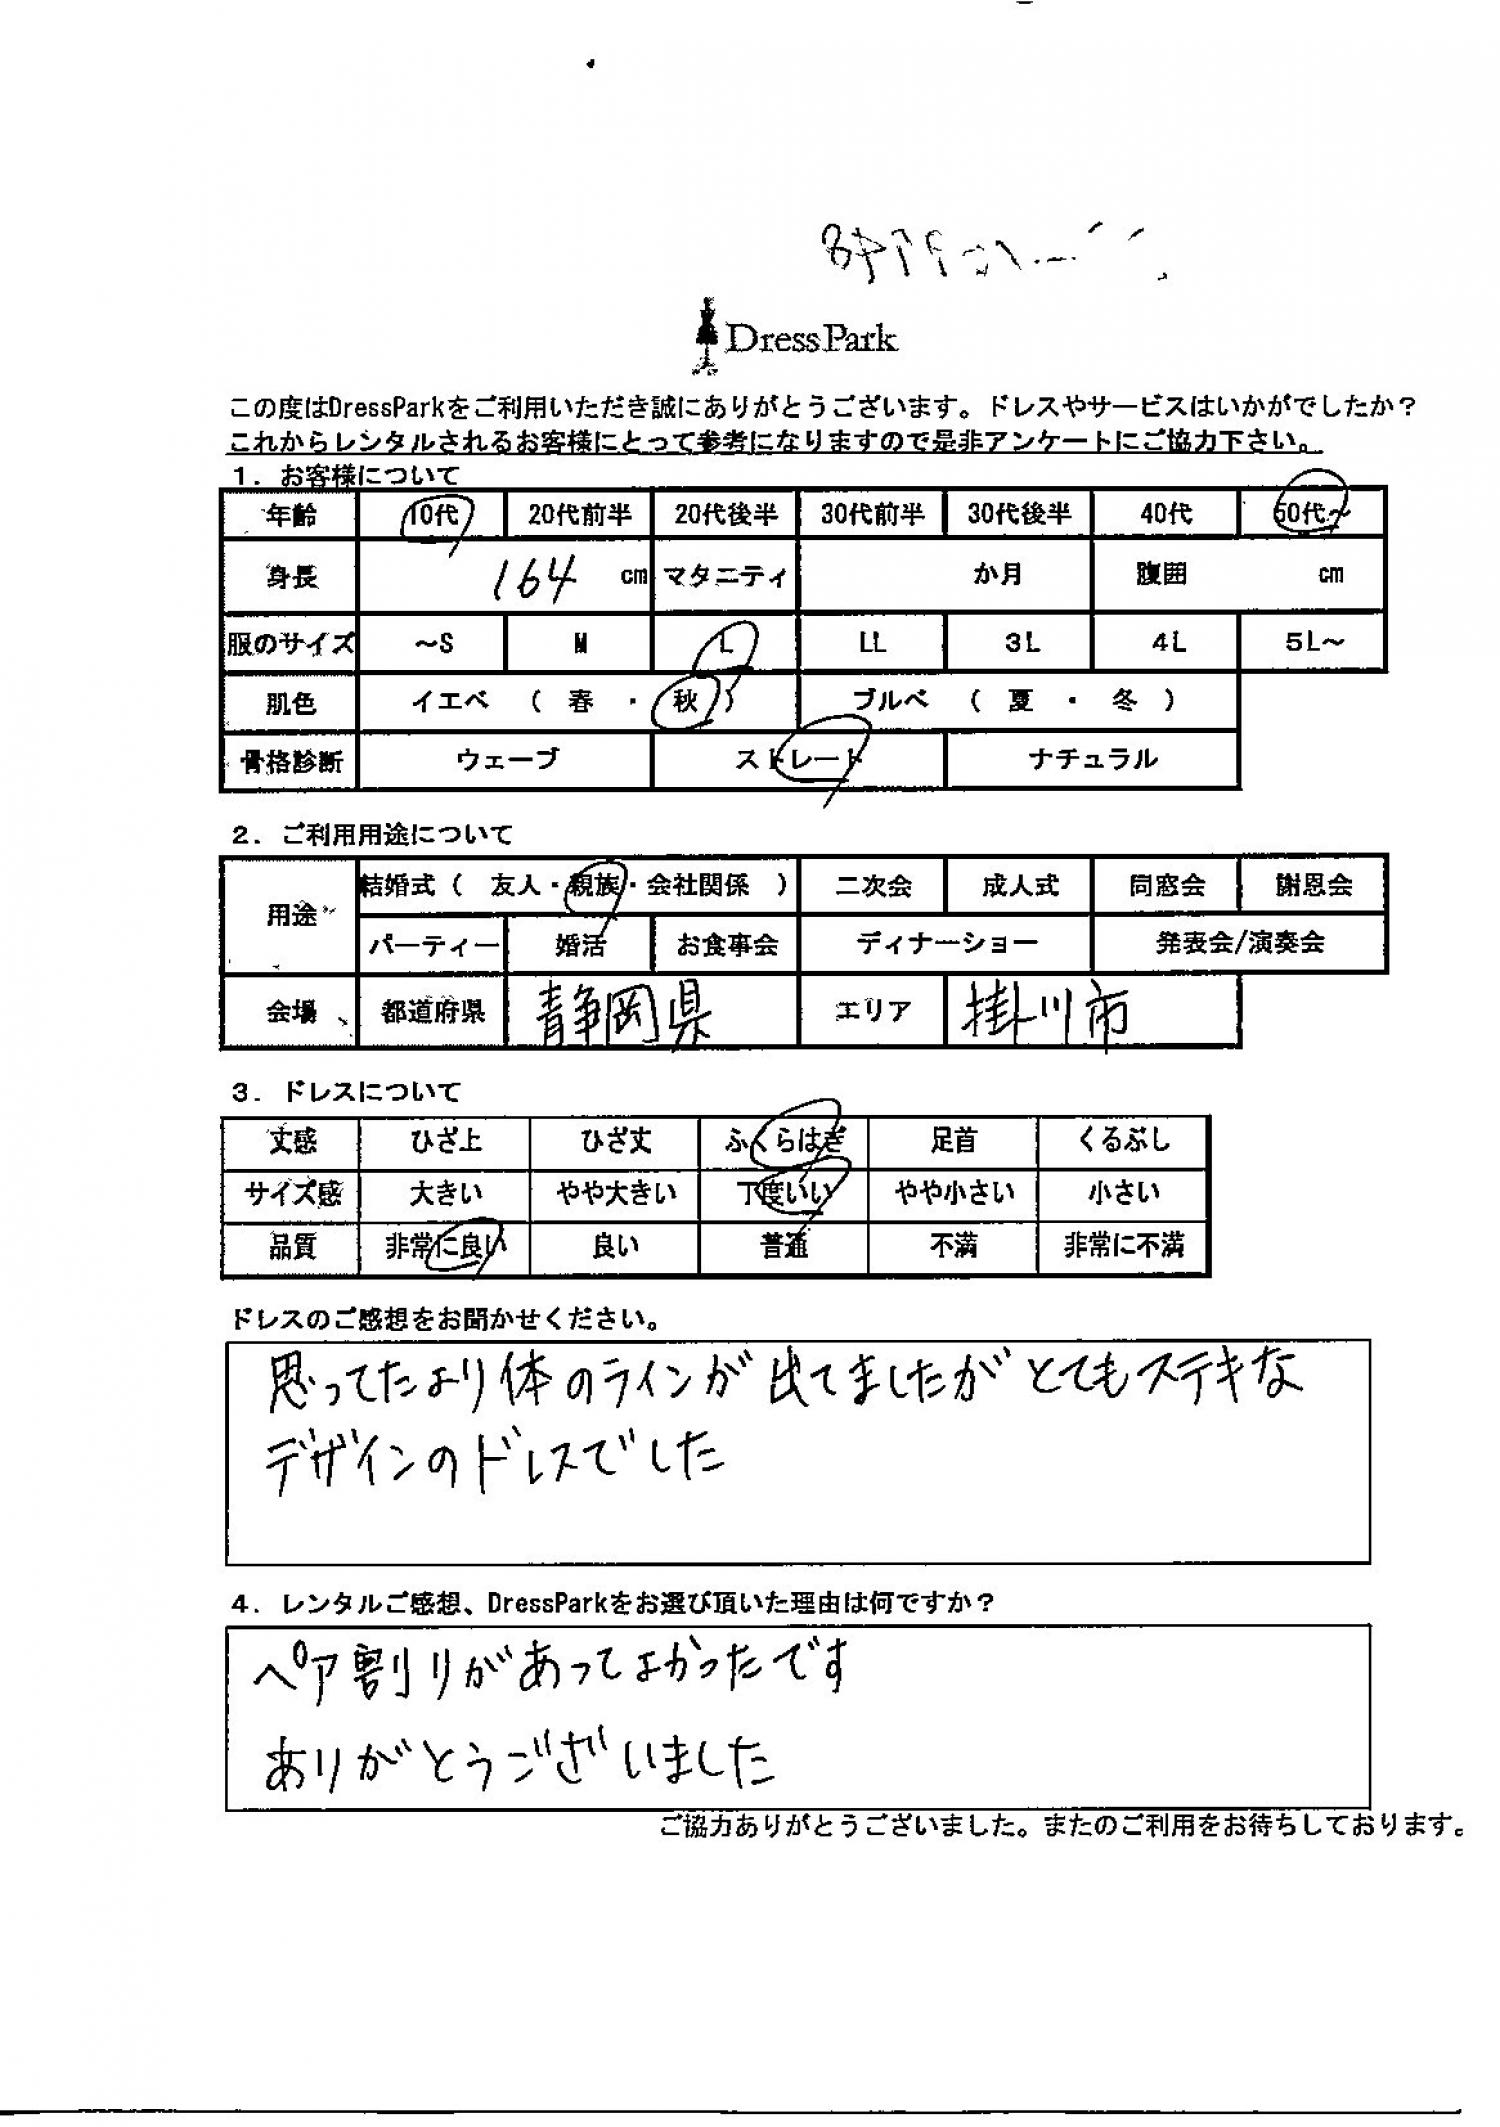 DressPark
この度はDressParkをご利用いただき誠にありがとうございます。ドレスやサービスはいかがでしたか？
これからレンタルされるお客様にとって参考になりますので是非アンケートにご協力下さい。
１．お客様について
年齢 10代 20代前半 20代後半 30代前半 30代後半 40代 50代～
身長 164 cm マタニティ か月 腹囲 cm
服のサイズ ～S M L LL 3L 4L 5L～
肌色 イエベ （ 春 ・ 秋 ） ブルベ （ 夏 ・ 冬 ）
骨格診断 ウェーブ ストレート ナチュラル
２．ご利用用途について
用途 結婚式（ 友人・親族・会社関係 ） 二次会 成人式 同窓会 謝恩会
パーティー 婚活 お食事会 ディナーショー 発表会/演奏会
会場 都道府県 静岡県 エリア 掛川市
３．ドレスについて
丈感 ひざ上 ひざ丈 ふくらはぎ 足首 くるぶし
サイズ感 大きい やや大きい 丁度いい やや小さい 小さい
品質 非常に良い 良い 普通 不満 非常に不満
ドレスのご感想をお聞かせください。
思ってたより体のラインが出てましたがとてもステキな
デザインのドレスでした
４．レンタルご感想、DressParkをお選び頂いた理由は何ですか？
ペア割りがあってよかったです
ありがとうございました
ご協力ありがとうございました。またのご利用をお待ちしております。